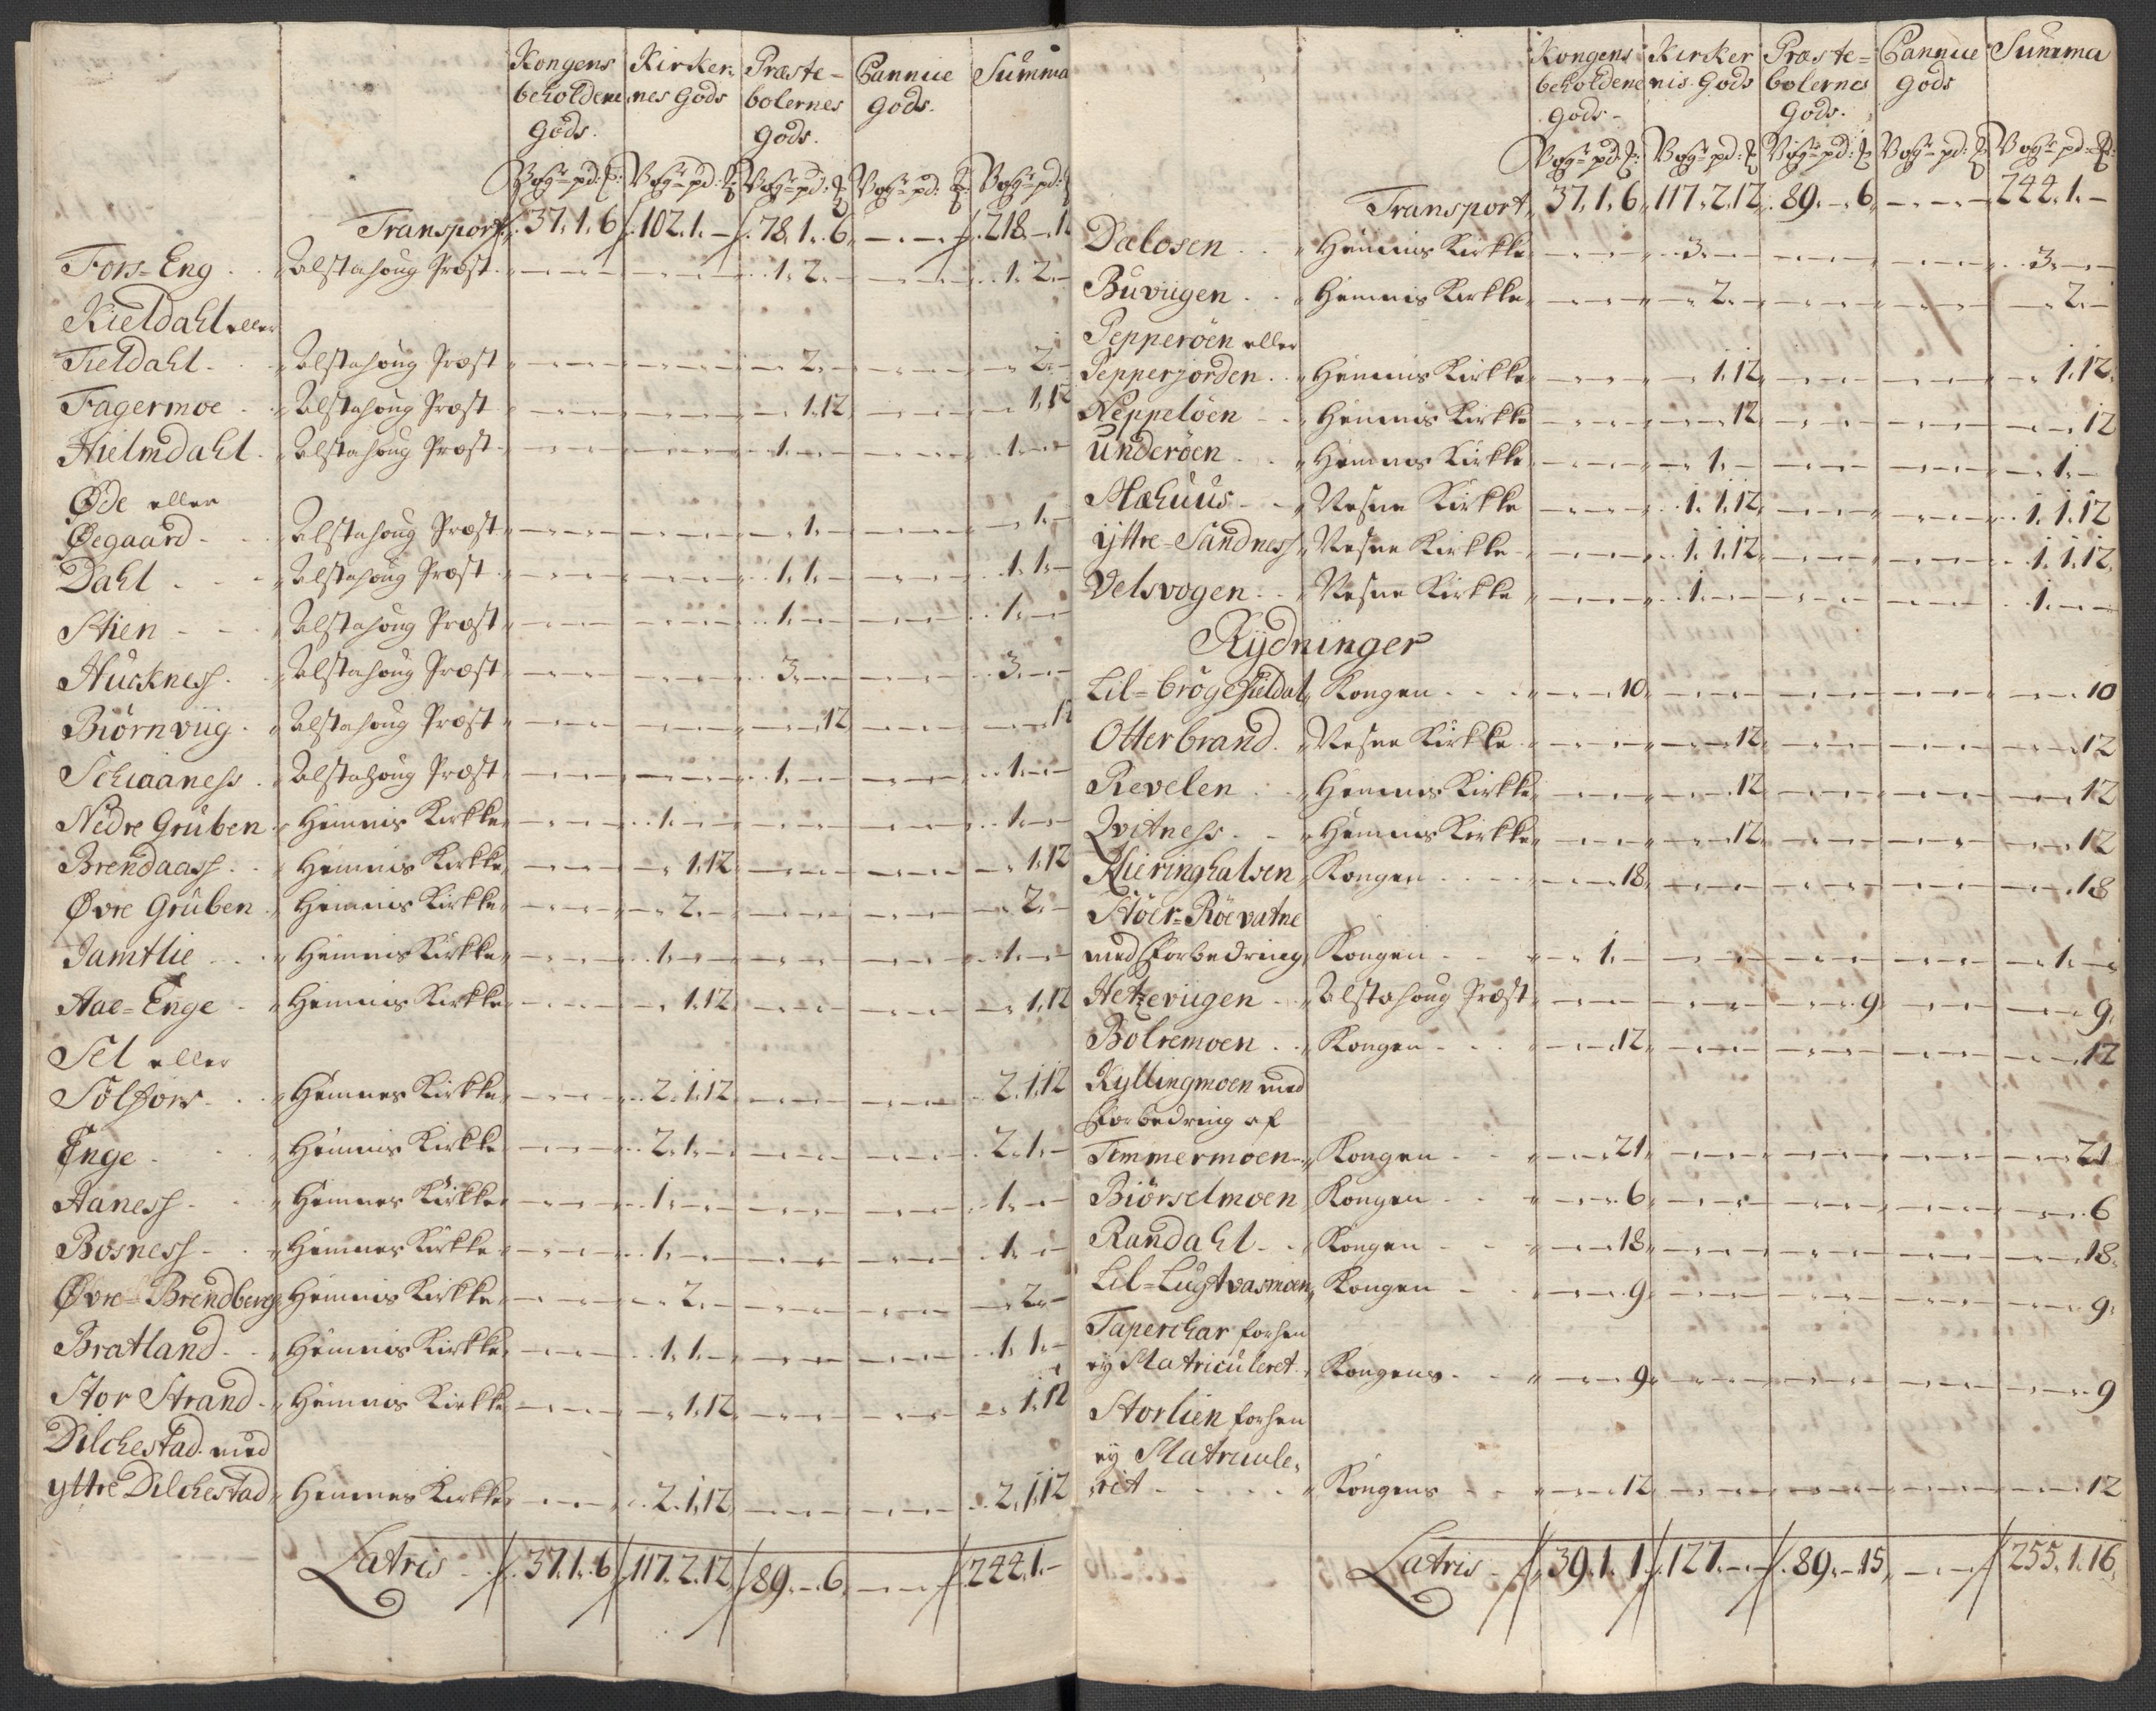 Kongens Kirker- Præste- Cannice Summa
beholdene nes Gods bolernes Gods.
Gods. Gods.
Vog: pd: Vog: pd: Vog: pd: Vog: pd: Vog: pd:
Transport 37. 1. 6 102. 1. - 78. 1. 6 - - - 218. - 1
Fors-Eng Alstahoug Præst - - - - - - 1. 2. - - - - 1. 2. -
Kieldahl eller
Fieldahl Alstahoug Præst - - - - - - - 2. - - - - - 2. -
Fagermoe Alstahoug Præst - - - - - - - 1. 12 - - - - 1. 12
Hielmdahl Alstahoug Præst - - - - - - 1. - - - - - 1. - -
Øde eller
Øegaard Alstahoug Præst - - - - - - - 1. - - - - - 1. -
Dahl Alstahoug Præst - - - - - - 1. 1. - - - - 1. 1. -
Stien Alstahoug Præst - - - - - - 1. - - - - - 1. - -
Huckness Alstahoug Præst - - - - - - 3. - - - - - 3. - -
Biörnviig Alstahoug Præst - - - - - - - - 12 - - - - - 12
Schiaaness Alstahoug Præst - - - - - - 1. - - - - - 1. - -
Nedre Gruben Hemnis Kirkke - - - 1. - - - - - - - - 1. - -
Brendaass Hemnis Kirkke - - - - 1. 12 - - - - - - - 1. 12
Øvre Gruben Hemnis Kirkke - - - - 2. - - - - - - - - 2. -
Jamtlie Hemnis Kirkke - - - 1. - - - - - - - - 1. - -
Aae-Enge Hemnis Kirkke - - - - 1. 12 - - - - - - - 1. 12
Sel eller
Sölfors Hemnes Kirkke - - - 2. 1. 12 - - - - - - 2. 1. 12
Enge Hemnis Kirkke - - - 2. 1. - - - - - - - 2. 1. -
Aaness Hemnes Kirkke - - - 1. - - - - - - - - 1. - -
Bosness Hemnes Kirkke - - - 1. - - - - - - - - 1. - -
Øvre Brendberg Hemnis Kirkke - - - - 2. - - - - - - - - 2. -
Bratland Hemnis Kirkke - - - 1. 1. - - - - - - - 1. 1. -
Stor Strand Hemnis Kirkke - - - - 1. 12 - - - - - - - 1. 12
Dilchestad med
yttre Dilchestad Hemnes Kirkke - - - 2. 1. 12 - - - - - - 2. 1. 12
Latris 37. 1. 6 117. 2. 12 89. - 6 - - - 244. 1. -
Kongens Kirker Præste- Cannice Summa
beholdene nis Gods bolernes Gods
Gods Gods.
Vog: pd: Vog: pd: Vog: pd: Vog: pd: Vog: pd:
Transport 37. 1. 6 117. 2. 12 89. - 6 - - - 244. 1. -
Dalosen Hemnis Kirkke - - - 3. - - - - - - - - 3. - -
Buviigen Hemnis Kirkke - - - - 2. - - - - - - - - 2. -
Pepperöen eller
Pepperjorden Hemnis Kirkke - - - - 1. 12 - - - - - - - 1. 12
Neppelöen Hemnis Kirkke - - - - - 12 - - - - - - - - 12
Underöen Hemnes Kirkke - - - - 1. - - - - - - - - 1. -
Mæhuus Vefsne Kirkke - - - 1. 1. 12 - - - - - - 1. 1. 12
yttre-Sandness Vefsne Kirkke - - - 1. 1. 12 - - - - - - 1. 1. 12
Velsvogen Vefsne Kirkke - - - 1. - - - - - - - - 1. - -
Rydninger
Lil-brögefieldal Kongen - - 10 - - - - - - - - - - - 10
Otterbrand Vefsne Kirkke - - - - - 12 - - - - - - - - 12
Revelen Hemnes Kirkke - - - - - 12 - - - - - - - - 12
Qvitness Hemnis Kirkke - - - - - 12 - - - - - - - - 12
Kieringhalsen Kongen - - 18 - - - - - - - - - - - 18
Stöer-Röevatne
med Forbedring Kongen - 1. - - - - - - - - - - - 1. -
Hetzeviigen Alstahoug Præst - - - - - - - - 9 - - - - - 9
Bolremoen Kongen - - 12 - - - - - - - - - - - 12
Kyllingmoen med
Forbedring af
Timmermoen Kongen - - 21 - - - - - - - - - - - 21
Biörselmoen Kongen - - 6 - - - - - - - - - - - 6
Randahl Kongen - - 18 - - - - - - - - - - - 18
Lil-Lugtvasmoen Kongen - - 9 - - - - - - - - - - - 9
Taperchar forhen
ey Matriculeret Kongens - - 9 - - - - - - - - - - - 9
Storlien forhen
ey Matricule-
ret Kongens - - 12 - - - - - - - - - - - 12
Latris 39. 1. 1 127. - - 89. - 15 - - - 255. 1. 16